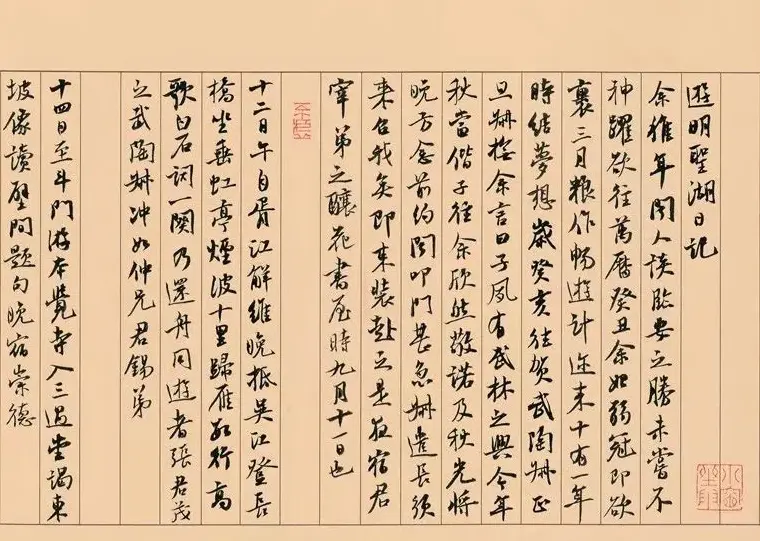 遊明聖湖日記
余稚年聞人談臨安之勝未嘗不
神躍欲往萬曆癸丑余始弱冠即欲
裹三月糧作暢遊計迩来十有一年
時結夢想歲癸亥往賀武陶姊正
旦姊余言曰子夙有武林之興今年
秋當偕子往余欣然敬諾及秋光將
晚方念前約聞叩門甚急姊遣長須
来召我矣即束裝赴之是夜宿君
宰弟之釀花書屋時九月十一日也
十二日午自胥江解維晚抵吳江登長
橋坐垂虹亭煙波十里歸雁數行高
歌白石詞一闋乃還舟同遊者張君茂
之武陶姊冲如仲兄君錫弟
十四日至斗門游本覺寺入三過堂謁東
坡像讀壁間題句晚宿崇德